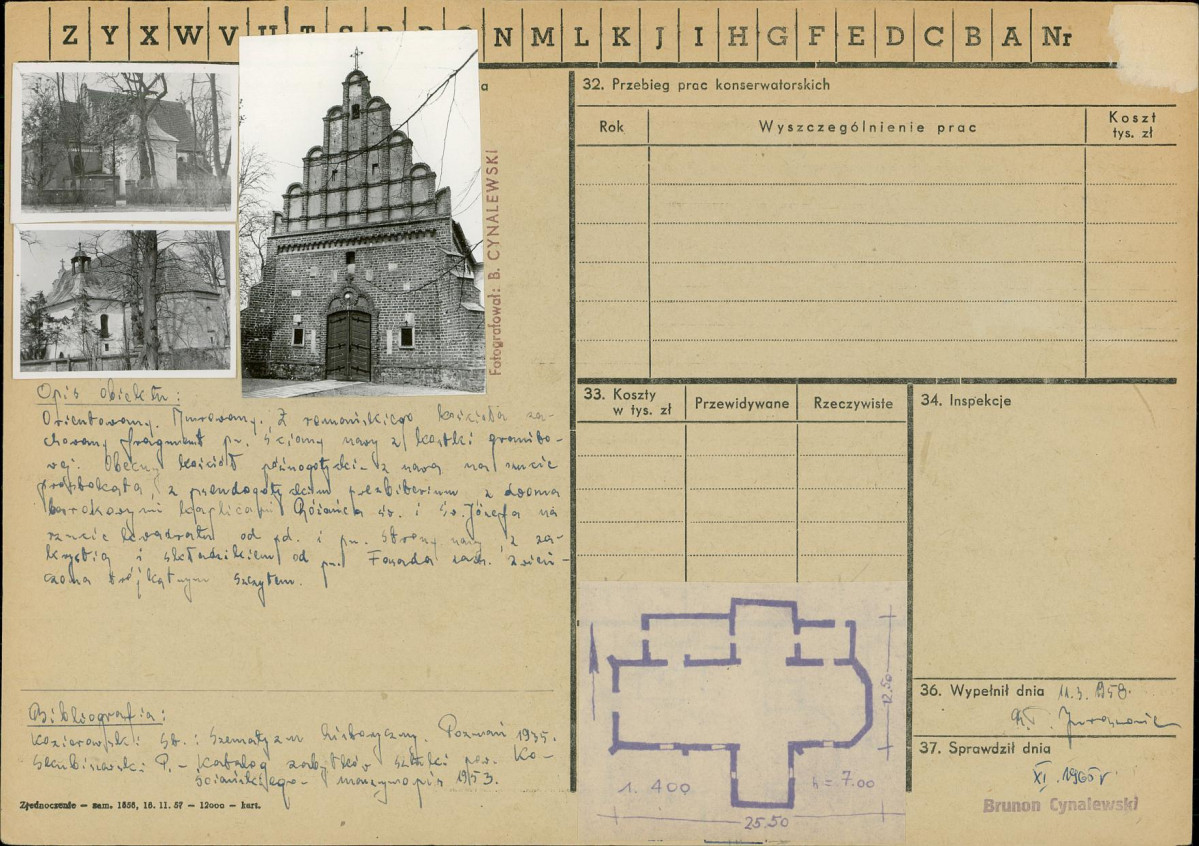 Z Y X W V U T S N M L K J I H G F E D C B A Nr
Fotografował: B. CYNALEWSKI
Opis obiektu:
Orientowany. Murowany. Z romańskiego kościoła za-
chowany fragment pn. ściany nawy z kostki granito-
wej. Obecny kościół późnogotycki - z nawą na rzucie
prostokąta, z pseudogotyckim prezbiterium z dwoma
barokowymi kaplicami Różańca św. i św. Józefa na
rzucie kwadratu od pd. i pn. strony nawy, z za-
krystią i składzikiem od pn. Fasada zach. zwień-
czona trójkątnym szczytem.
Bibliografia:
Kozierowski St.: Szematyzm historyczny Poznań 1935.
Skubiszewski P. - Katalog zabytków sztuki pow. Ko-
ściańskiego - maszynopis 1953.
Zjednoczenie — zam. 1856, 16. 11. 57 — 12000 — kart.
32. Przebieg prac konserwatorskich
Rok
Wyszczególnienie prac
Koszt
tys. zł
33. Koszty
w tys. zł
Przewidywane
Rzeczywiste
34. Inspekcje
12.50
1. 400
h = 7.00
25.50
36. Wypełnił dnia 11.3.1958.
37. Sprawdził dnia
XI. 1965 r
Brunon Cynalewski